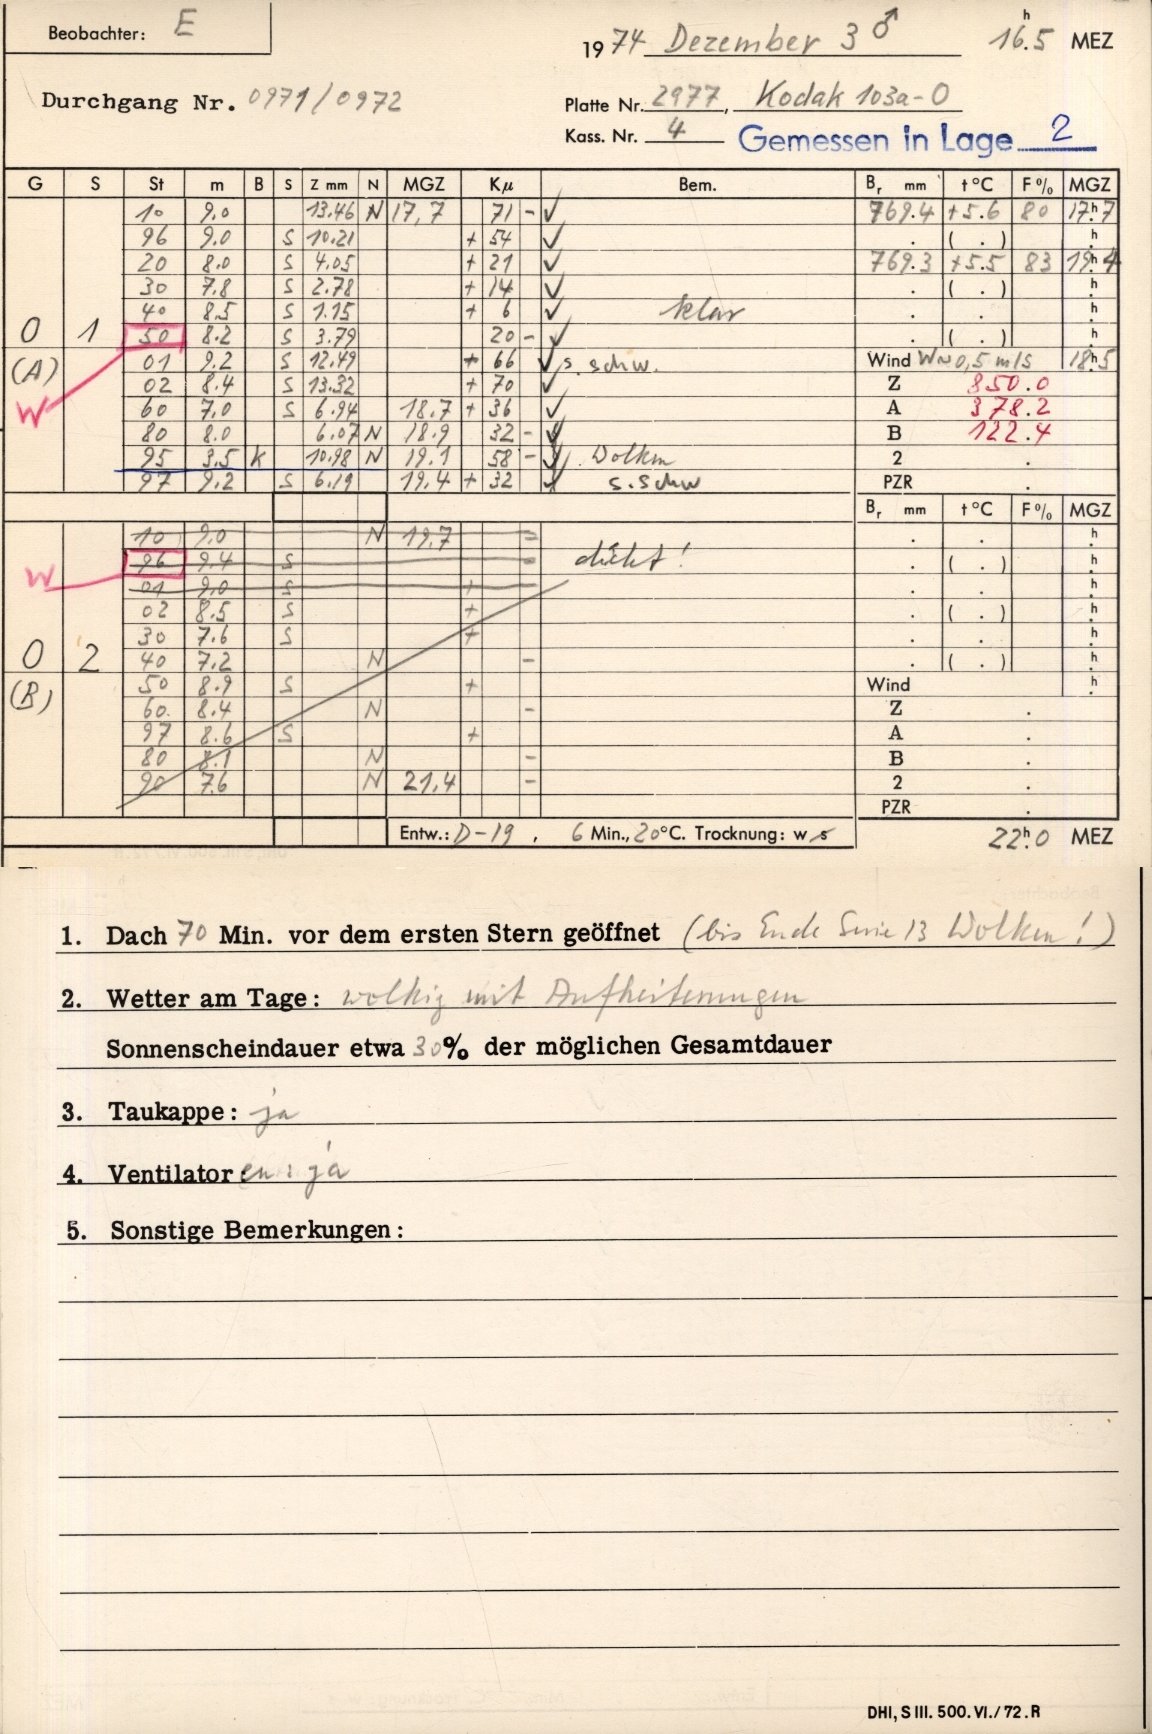 Beobachter: E
1974 Dezember 3 ♂ 16.5 h MEZ
Durchgang Nr. 0971/0972
Platte Nr. 2977, Kodak 103a-O
Kass. Nr. 4 Gemessen in Lage 2
G S St m B S Z mm N MGZ Kμ Bem. Br mm t °C F % MGZ
10 9.0 13.46 N 17,7 71 - ✓ 769.4 +5.6 80 17h.7
96 9.0 S 10.21 + 54 ✓ . ( . ) h
20 8.0 S 4.05 + 21 ✓ 769.3 +5.5 83 19h.4
30 7.8 S 2.78 + 14 ✓ . ( . ) h
40 8.5 S 1.15 + 6 ✓ klar . . h
0 1 50 8.2 S 3.79 20 - ✓ . ( . ) h
(A) 01 9.2 S 12.49 + 66 ✓ s. schw. Wind W~0,5 m/s 18h.5
02 8.4 S 13.32 + 70 ✓ Z 850.0
W 60 7.0 S 6.94 18.7 + 36 ✓ A 378.2
80 8.0 6.07 N 18.9 32 - ✓ B 122.4
95 3.5 K 10.98 N 19.1 58 - ✓ Wolken 2 .
97 9.2 S 6.19 19.4 + 32 ✓ s. schw PZR .
Br mm t °C F % MGZ
10 9.0 N 19.7 - . . h
W 96 9.4 S - dicht! . ( . ) h
01 9.0 S + . . h
02 8.5 S + . ( . ) h
30 7.6 S + . . h
0 2 40 7.2 N - . ( . ) h
(B) 50 8.9 S + Wind h
60. 8.4 N - Z .
97 8.6 S + A .
80 8.1 N - B .
90 7.6 N 21,4 - 2 .
PZR .
Entw.: D-19 , 6 Min., 20°C. Trocknung: w s 22h.0 MEZ
1. Dach 70 Min. vor dem ersten Stern geöffnet (bis Ende Serie 13 Wolken!)
2. Wetter am Tage: wolkig mit Aufheiterungen
Sonnenscheindauer etwa 30% der möglichen Gesamtdauer
3. Taukappe: ja
4. Ventilator: ja
5. Sonstige Bemerkungen:
DHI, S III. 500. VI./72. R